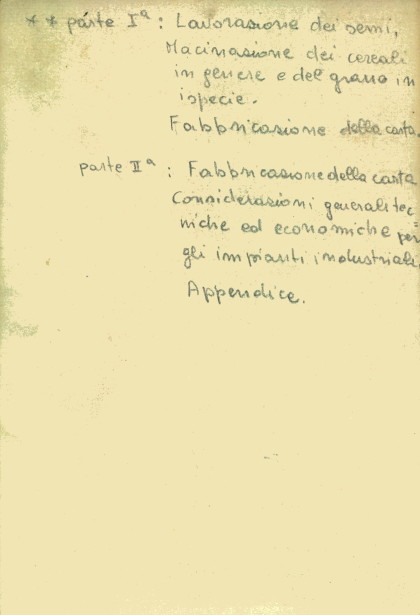 * * parte Iª : Lavorazione dei semi,
Macinazione dei cereali
in genere e del grano in
ispecie.
Fabbricazione della carta.
parte IIª : Fabbricazione della carta
Considerazioni generali tec=
niche ed economiche per
gli impianti industriali
Appendice.